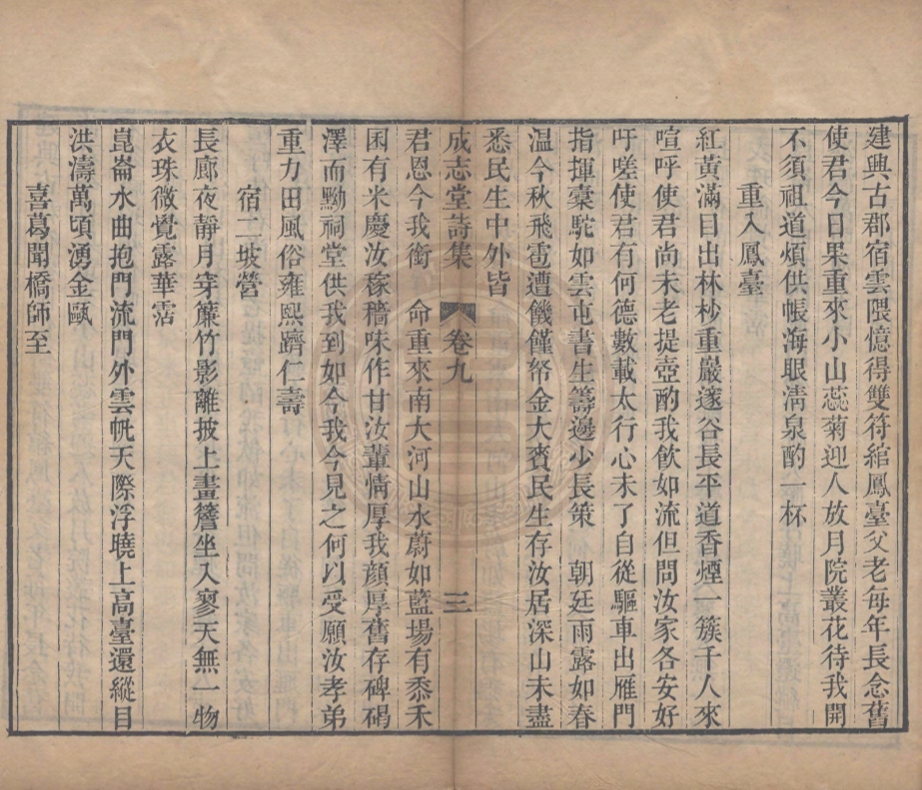 建興古郡宿雲隈憶得雙符綰鳳臺父老每年長念舊
使君今日果重來小山蕊菊迎人放月院叢花待我開
不須祖道煩供帳海眼淸泉酌一杯
重入鳳臺
紅黃滿目出林杪重巖邃谷長平道香煙一簇千人來
喧呼使君尚未老提壺酌我飲如流但問汝家各安好
吁嗟使君有何德數載太行心未了自從驅車出雁門
指揮橐駝如雲屯書生籌邊少長策 朝廷雨露如春
温今秋飛雹遭饑僅帑金大賚民生存汝居深山未盡
悉民生中外皆
成志堂詩集 卷九 三
君恩今我銜 命重來南大河山水蔚如藍場有黍禾
囷有米慶汝稼穡味作甘汝輩情厚我顏厚舊存碑碣
澤而黝祠堂供我到如今我今見之何以受願汝孝弟
重力田風俗雍熙躋仁壽
宿二坡營
長廊夜靜月穿簾竹影離披上畫簷坐入寥天無一物
衣珠微覺露華霑
崑崙水曲抱門流門外雲帆天際浮曉上高臺還縱目
洪濤萬頃湧金甌
喜葛聞橋師至